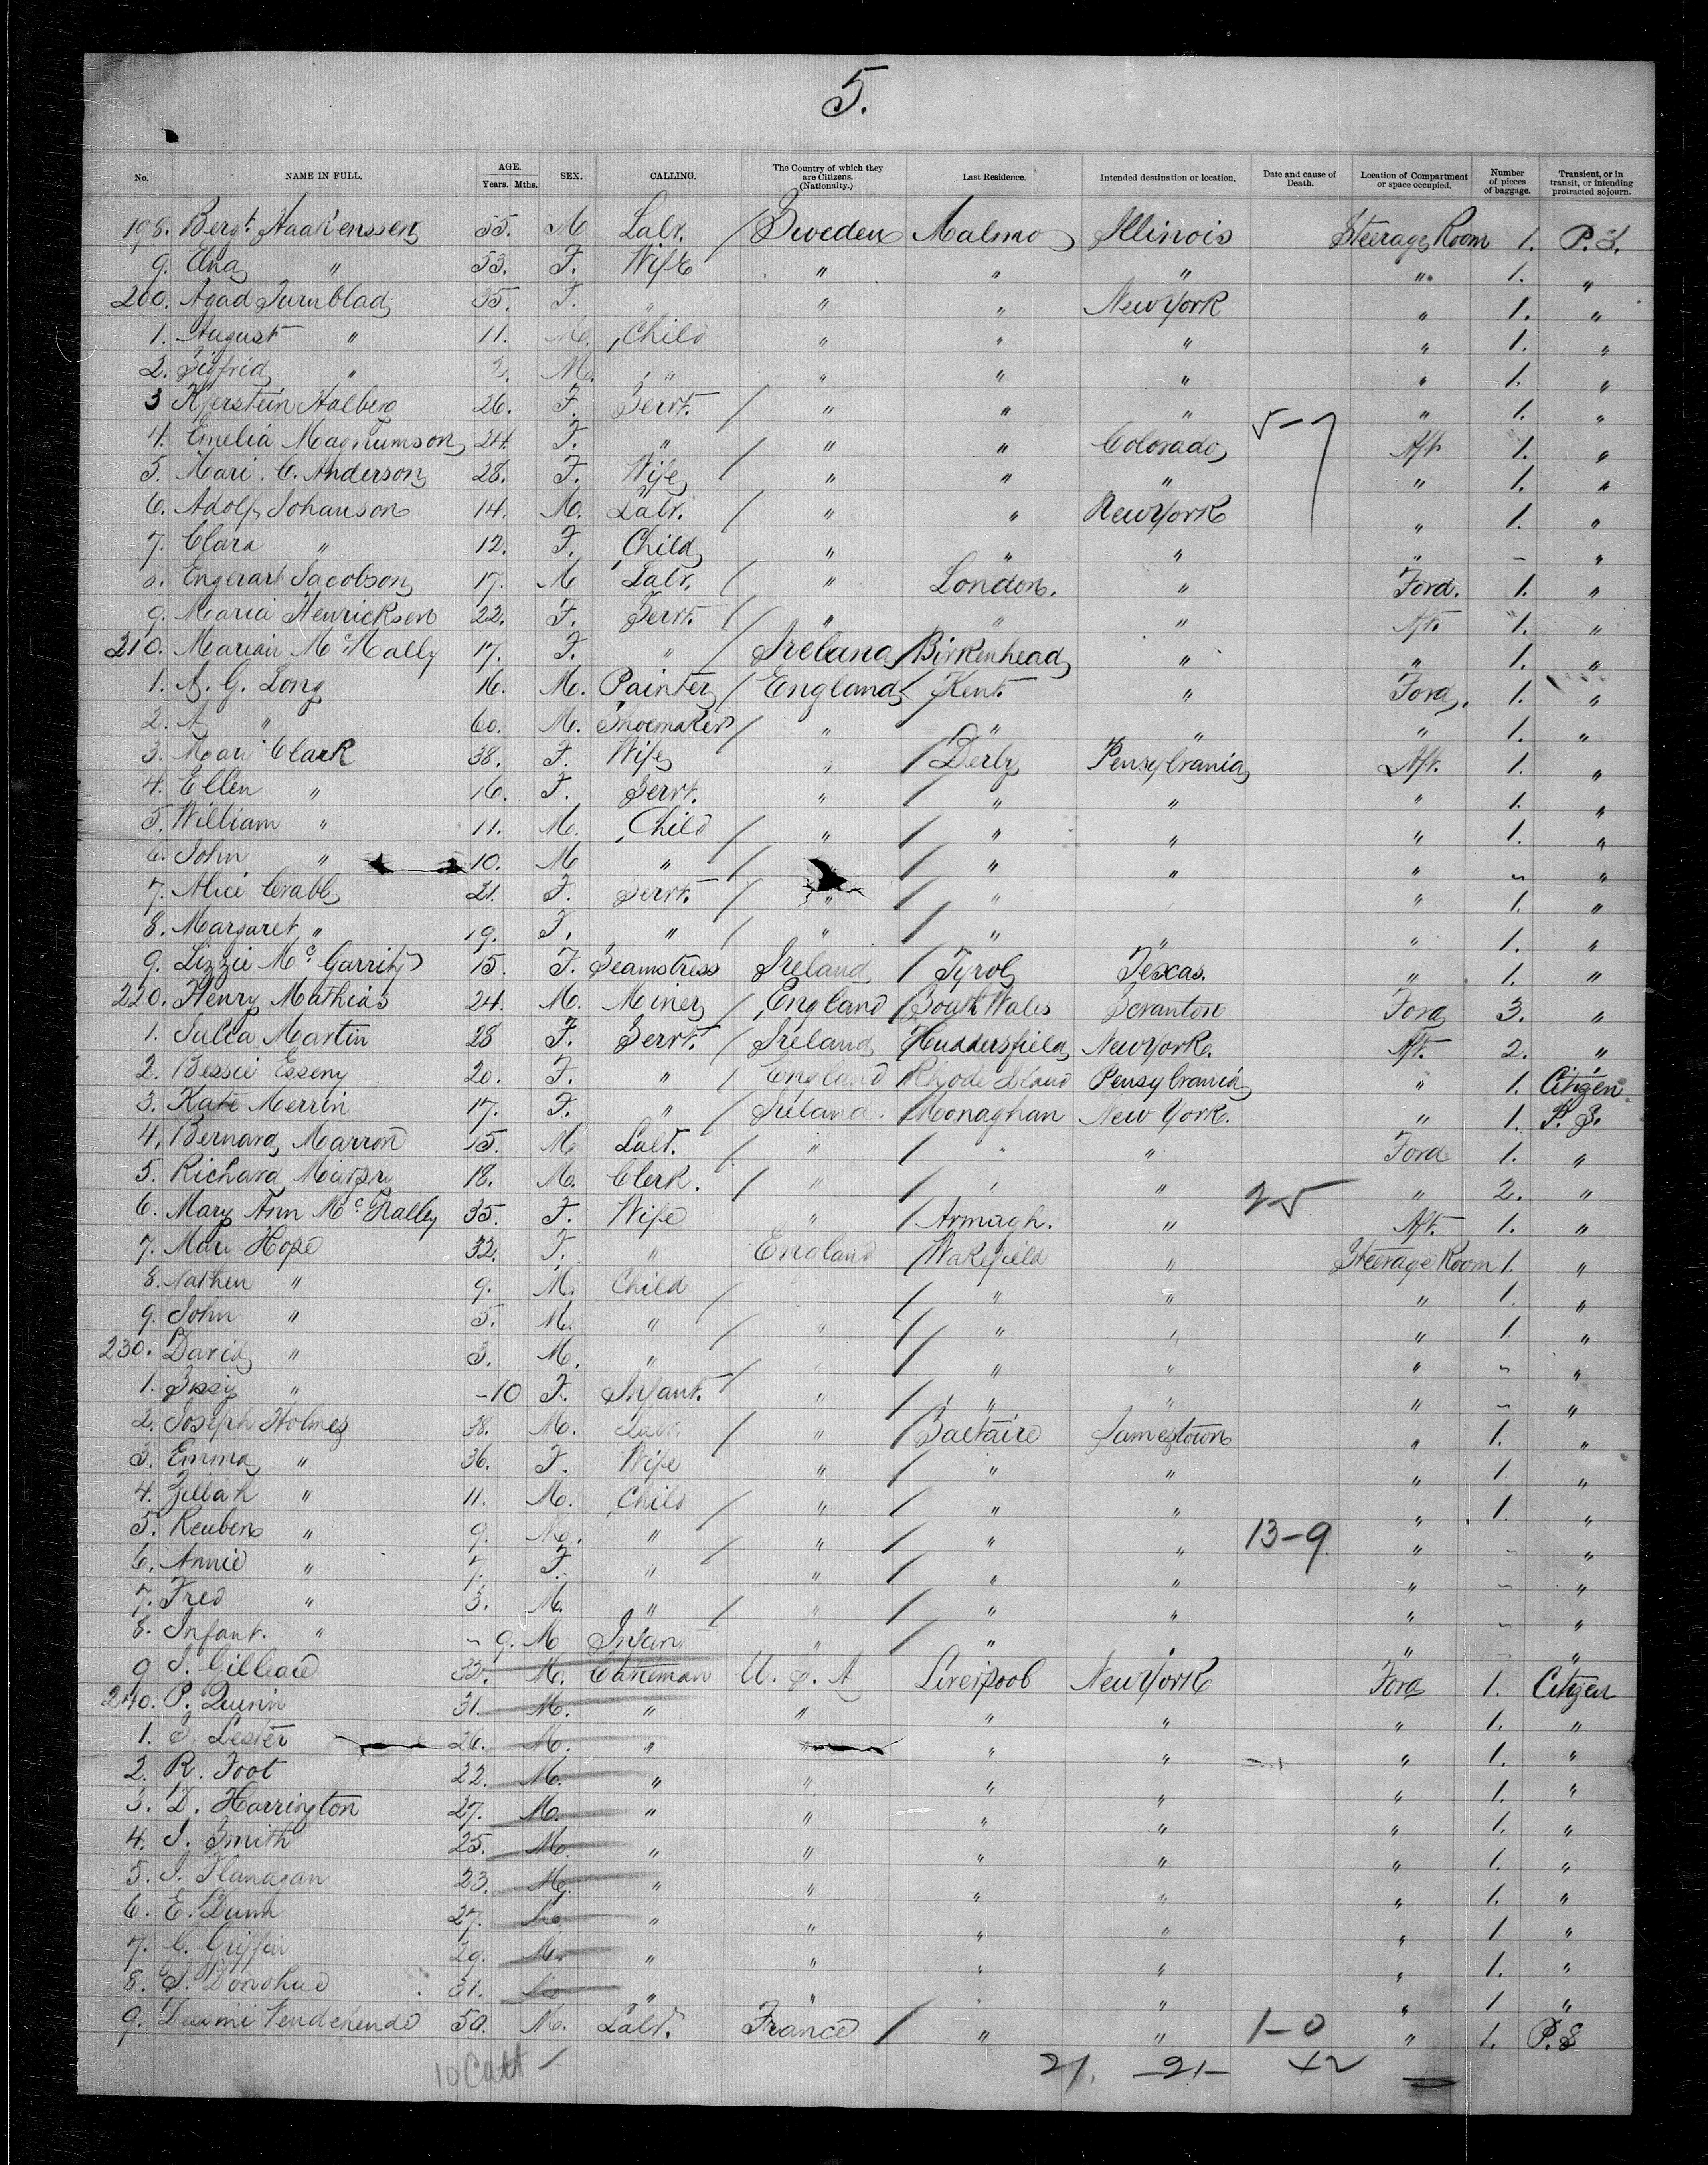 5.
No. NAME IN FULL. AGE. Years. Mths. SEX. CALLING. The Country of which they are Citizens. (Nationality.) Last Residence. Intended destination or location. Date and cause of Death. Location of Compartment or space occupied. Number of pieces of baggage. Transient, or in transit, or intending protracted sojourn.
198. Bergt. Haakenssen 55. M Labr. / Sweden Malmo Illinois Steerage Room 1. P.S.
9. Elna " 53. F. Wife " " " " 1. "
200. Agad Turnblad 35. F. " " " New York " 1. "
1. August " 11. M. Child " " " " 1. "
2. Sigfrid " M. " " " " " 1. "
3 Kjerstein Halberg 26. F. Servt. / " " " " 1. "
4. Emelia Magnumson 24. F. " / " " Colorado 5-7 Aft. 1. "
5. Mari. C. Anderson 28. F. Wife / " " " " 1. "
6. Adolf Johanson 14. M. Labr. / " " New York " 1. "
7. Clara " 12. F. Child " " " " - "
8. Engerart Jacobson 17. M Labr. / " London. " Ford. 1. "
9. Maria Henricksen 22. F. Servt. / " " " Aft. 1. "
210. Marian Mc Nally 17. F. " / Ireland / Birkenhead " " 1. "
1. A. G. Long 16. M. Painter / England / Kent. " Ford. 1. "
2. A " 60. M. Shoemaker / " " " " 1. "
3. Mari Clark 38. F. Wife " / Derby Pensylvania Aft. 1. "
4. Ellen " 16. F. Servt. " / " " " 1. "
5. William " 11. M. Child / " / " " " 1. "
6. John " 10. M " / / " " " - "
7. Alice Crabb 21. F. Servt. / " / " " 1. "
8. Margaret " 19. F. " / " / " " " 1. "
9. Lizzie Mc Garrity 15. F. Seamstress Ireland / Tyrol Texas. " 1. "
220. Henry Mathias 24. M. Miner / England / South Wales Scranton Ford 3. "
1. Julia Martin 28 F. Servt. / Ireland / Huddersfield New York. Aft. 2. "
2. Bessie Esseny 20. F. " / England / Rhode Island Pensylvania " 1. Citizen.
3. Kate Merrin 17. F. " / Ireland. / Monaghan New York. " 1. P.S.
4. Bernard Marron 15. M Labr. / " / " " Ford 1. "
5. Richard 18. M. Clerk. / " / " " " 2. "
6. Mary Ann Mc Nalley 35. F. Wife " / Armagh. " 2-5 Aft. 1. "
7. Mari Hope 32. F. " England / Wakefield " Steerage Room 1. "
8. Nathen " 9. M. Child / / " " " 1. "
9. John " 5. M. " / " / " " " 1. "
230. David " 3. M. " / " / " " " - "
1. " -10 F. Infant. " / " " " - "
2. Joseph Holmes 38. M. Labr. / " / Saltaire Jamestown " 1. "
3. Emma " 36. F. Wife " / " " " 1. "
4. Zillah " 11. M. Child / " / " " " 1. "
5. Reuben " 9. M. " / " / " " 13-9 " - "
6. Annie " 7. F. " / " / " " " - "
7. Fred " 3. M. " / " / " " " - "
8. Infant. " - 9. M Infan " / " " " - "
9 J. Gilleare 32. M. Cattleman U.S.A Liverpool New York Ford 1. Citizen
240. P. Quinn 31. M. " " " " " 1. "
1. S. Lester 26. M. " " " " " 1. "
2. R. Foot 22. M. " " " " " 1. "
3. D. Harrington 27. M. " " " " " 1. "
4. J. Smith 25. M. " " " " " 1. "
5. J. Flanagan 23. M. " " " " " 1. "
6. E. Dunn 27. M. " " " " " 1. "
7. C. Griffin 29. M. " " " " " 1 "
8. J. Donohue 31. M " " " " " 1. "
9. 50. M. Labr. France / " " 1-0 " 1. P.S
10 Catt 21. -21- 42